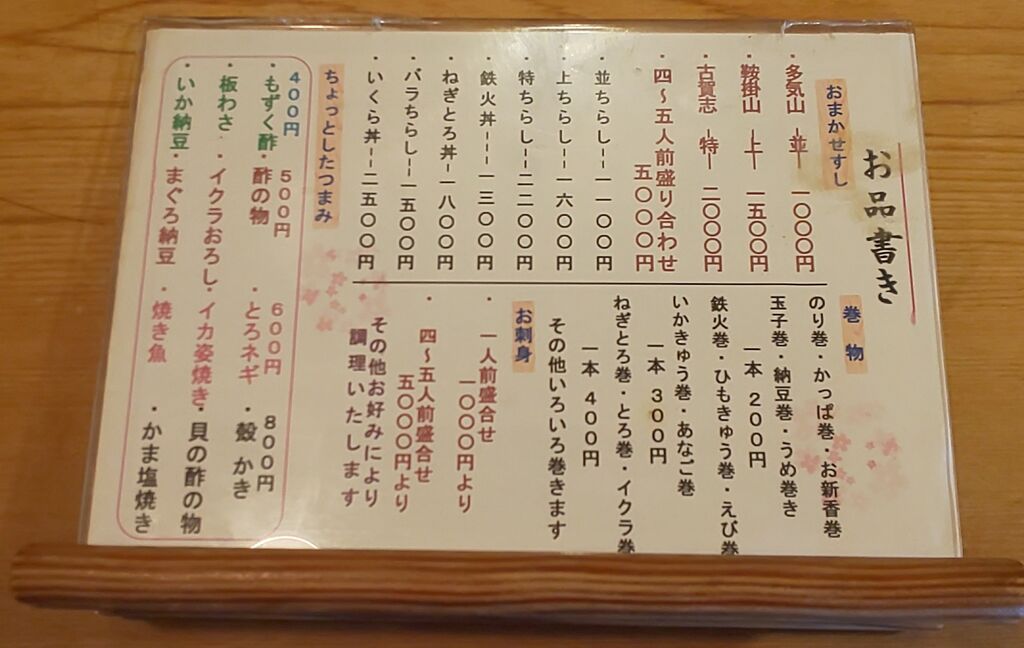 お品書き
おまかせすし
・多気山 ―並― 一〇〇〇円
・鞍掛山 ―上― 一五〇〇円
・古賀志 ―特― 二〇〇〇円
・四～五人前盛り合わせ
五〇〇〇円
・並ちらし－－一一〇〇円
・上ちらし－－一六〇〇円
・特ちらし－－二二〇〇円
・鉄火丼－－一三〇〇円
・ねぎとろ丼－一八〇〇円
・バラちらし－一五〇〇円
・いくら丼－二五〇〇円
巻物
のり巻・かっぱ巻・お新香巻
玉子巻・納豆巻・うめ巻き
一本 ２００円
鉄火巻・ひもきゅう巻・えび巻
いかきゅう巻・あなご巻
一本 ３００円
ねぎとろ巻・とろ巻・イクラ巻
一本 ４００円
その他いろいろ巻きます
お刺身
・一人前盛合せ
一〇〇〇円より
・四～五人前盛合せ
五〇〇〇円より
その他お好みにより
調理いたします
ちょっとしたつまみ
４００円
・もずく酢
・板わさ
・いか納豆
５００円
・酢の物
・イクラおろし
・まぐろ納豆
６００円
・とろネギ
・イカ姿焼き
・焼き魚
８００円
・殻かき
・貝の酢の物
・かま塩焼き